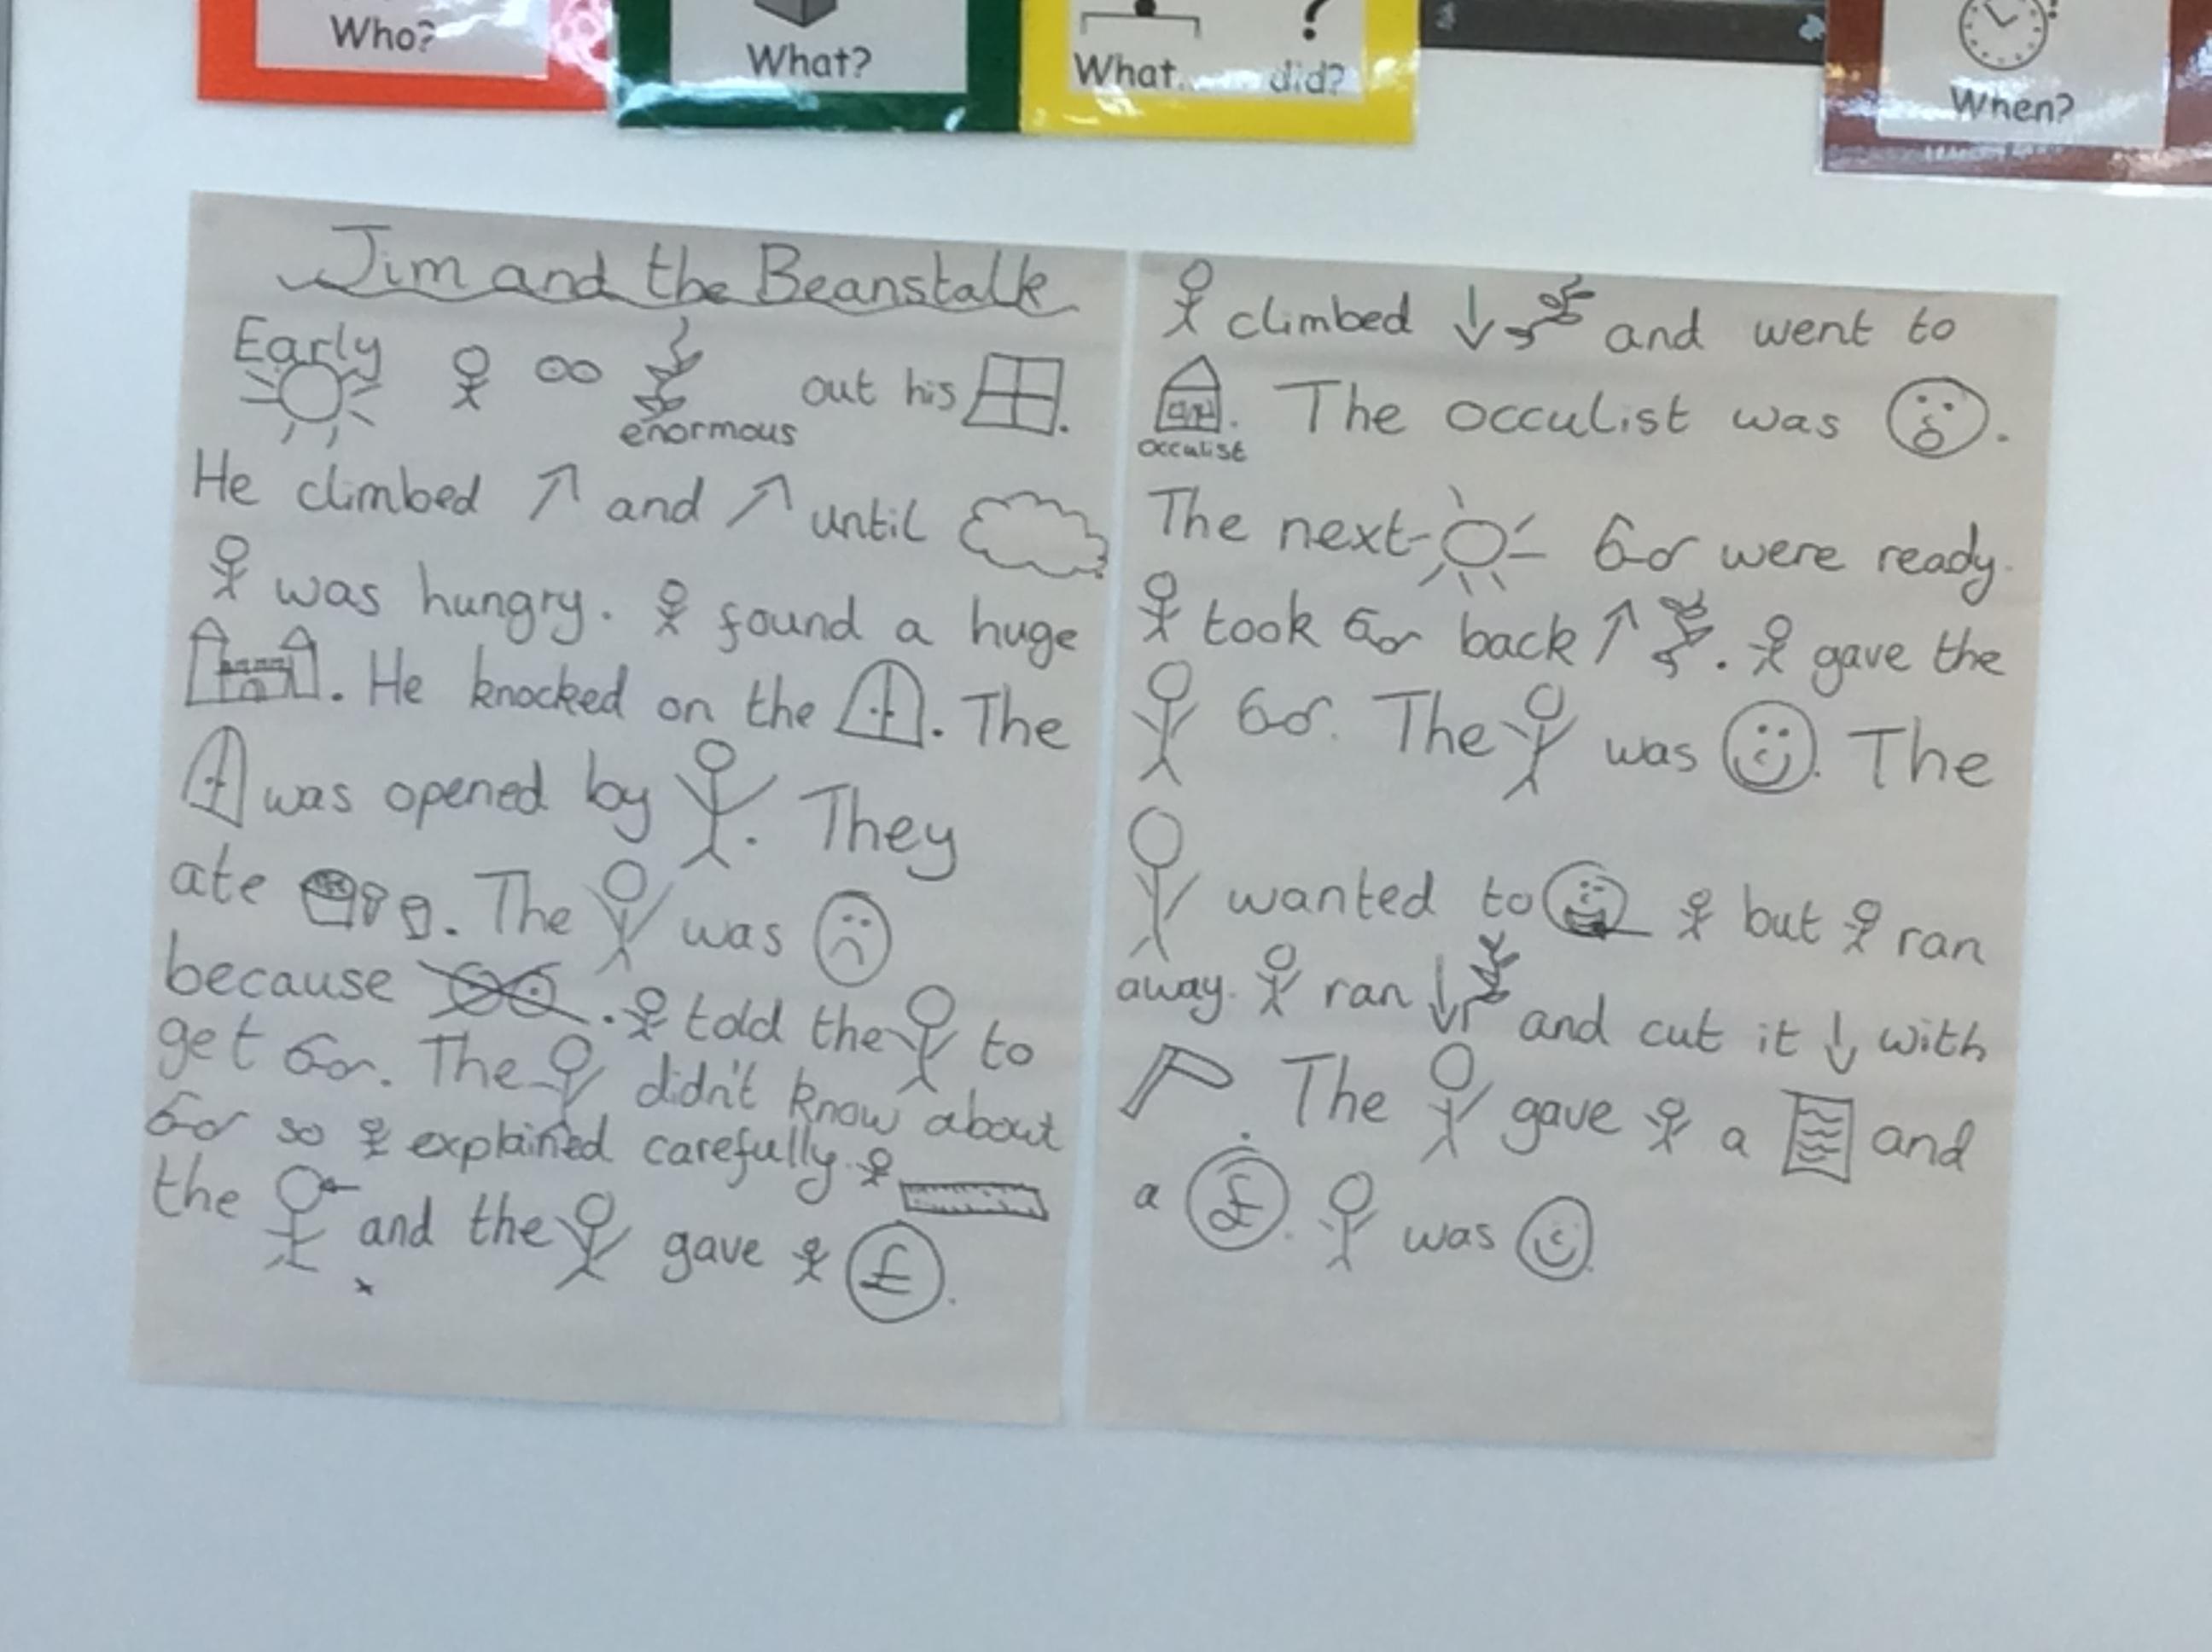 Who?
What?
What did?
When?
Jim and the Beanstalk
Early
enormous out his .
He climbed and until
was hungry. found a huge
. He knocked on the . The
was opened by . They
ate . The was
because . told the to
get . The didn't know about
so explained carefully.
the and the gave £.
climbed and went to
. The occulist was .
occulist
The next were ready.
took back . gave the
. The was . The
wanted to but ran
away. ran and cut it with
. The gave a and
a £. was .